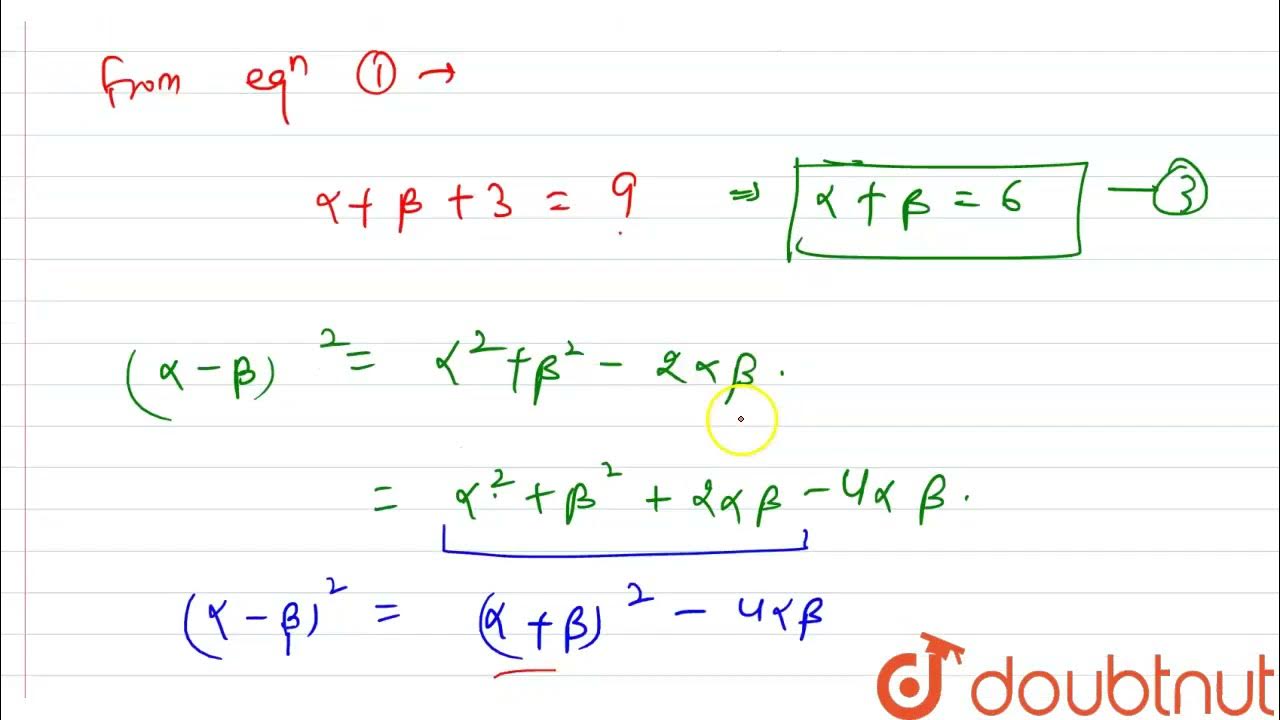 From eqⁿ ① →
α + β + 3 = 9 ⇒ α + β = 6 — ③
(α - β)² = α² + β² - 2αβ.
= α² + β² + 2αβ - 4αβ.
(α - β)² = (α + β)² - 4αβ
doubtnut